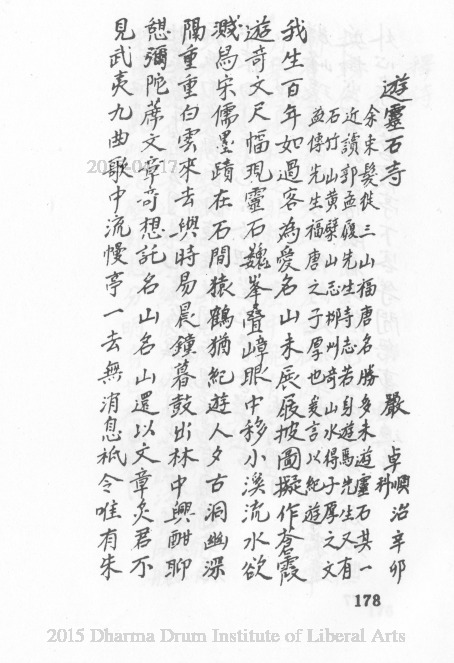 遊靈石寺 嚴卓順治辛卯科
余束髮從三山福唐名勝多未遊靈石其一
近讀郭孟履先生寺志若身遊焉先生又有
石竹山黃檗山志柳州奇山水得子厚之文
益傳先生福唐之子厚也爰言以紀遊
我生百年如過客為愛名山未展屐披圖擬作蒼霞
遊奇文尺幅現靈石巍峯疊嶂眼中移小溪流水欲
濺舄宋儒墨蹟在石間猿鶴猶紀遊人夕古洞幽深
隔重重白雲來去與時易晨鐘暮鼓出林中興酣聊
憩彌陀蓆文章奇想託名山名山還以文章炙君不
見武夷九曲歌中流幔亭一去無消息祇今唯有朱
178
2015 Dharma Drum Institute of Liberal Arts